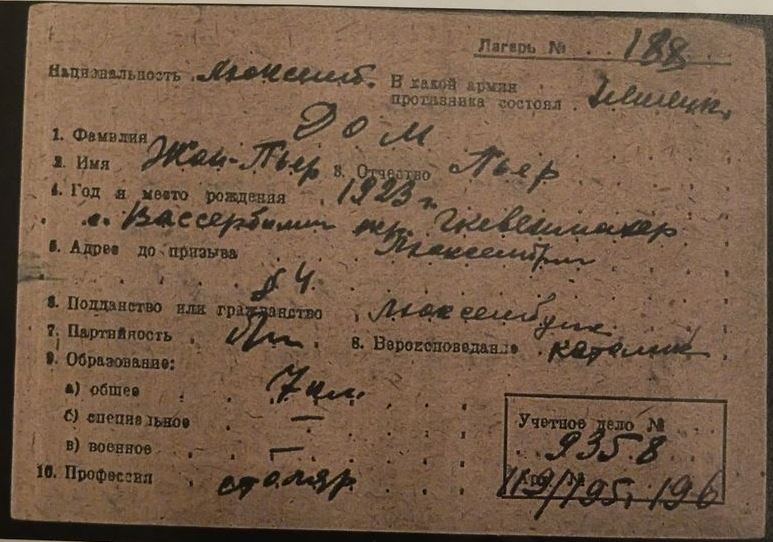 Лагерь № 188
Национальность Люксемб. В какой армии
противника состоял Немецк.
Дом
1. Фамилия
2. Имя Жан-Пьер 3. Отчество Пьер
4. Год и место рождения 1923 г.
с. Вассербилиг окр. Гревенмахер
5. Адрес до призыва Люксембург
§ 4
6. Подданство или гражданство Люксембург
7. Партийность б/п 8. Вероисповедание католик
9. Образование:
а) общее 7 кл.
б) специальное —
в) военное —
10. Профессия столяр
Учетное дело №
9358
Арх. №